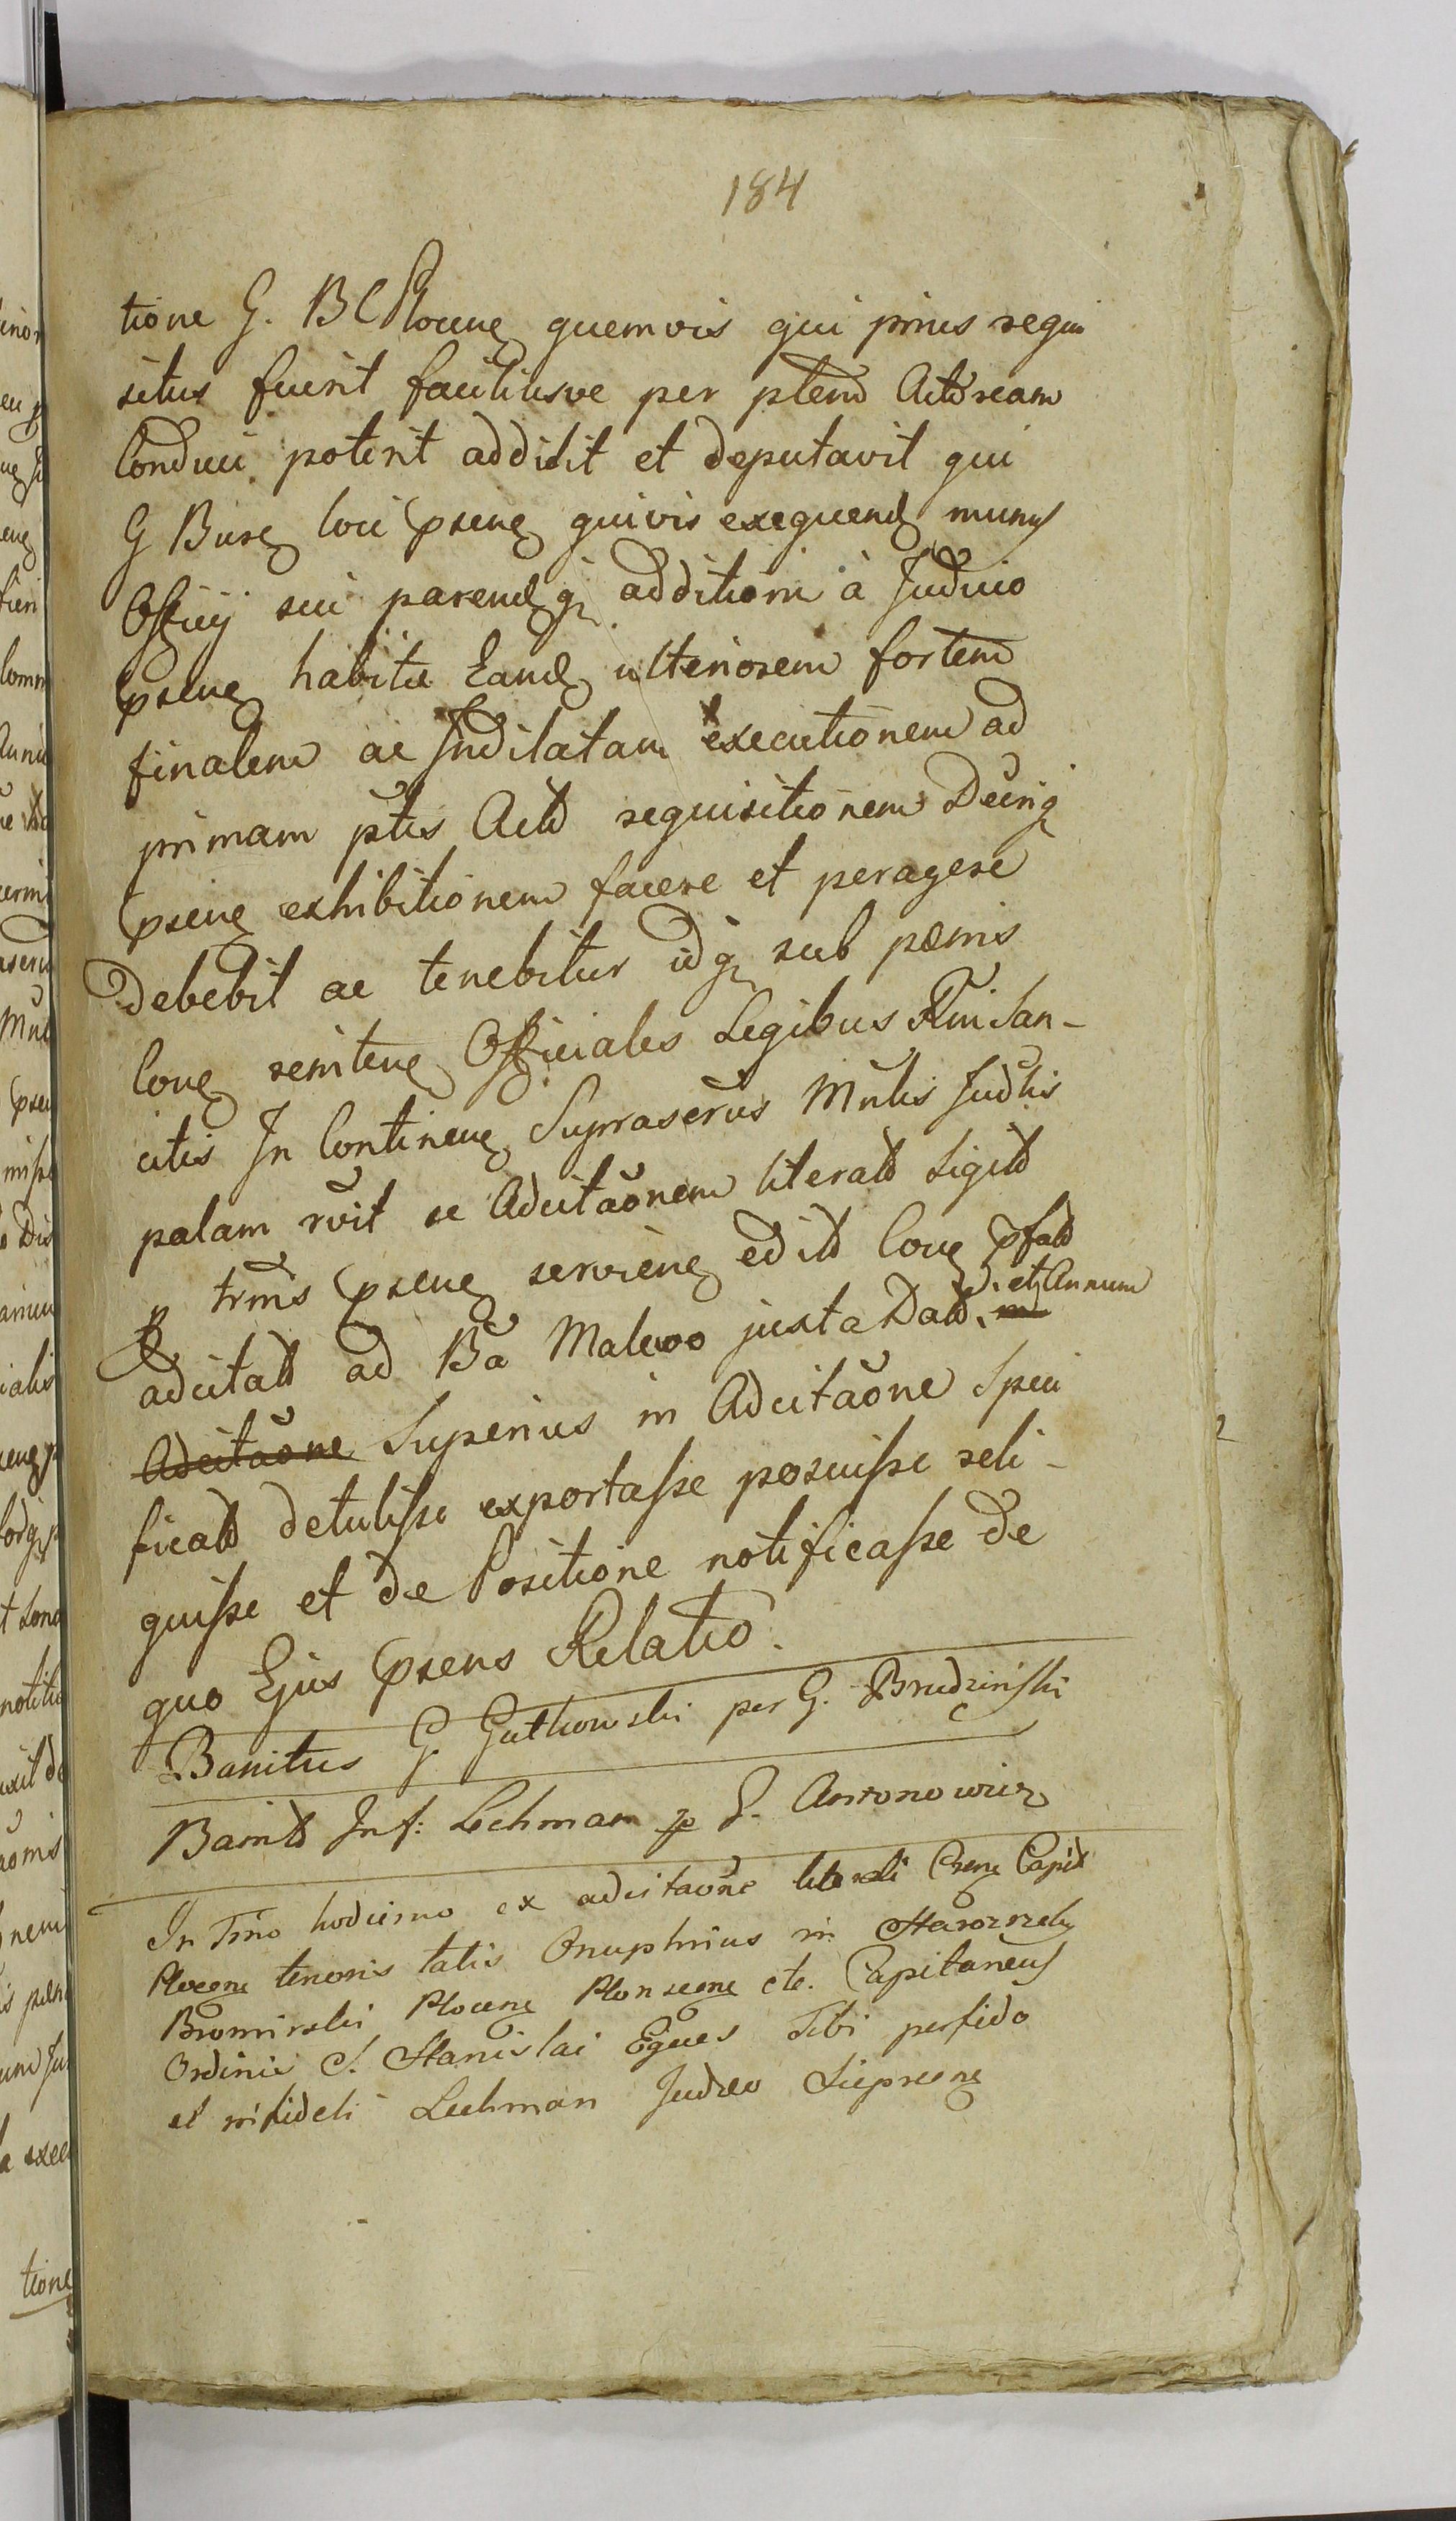 184
tione G. B C Plocen quemvis qui prius requi
situs fuerit faciliusve per ptem Actoream
Conduci poterit addidit et deputavit qui
G Burg loci psens quivis exequend muny
Officij sui parendq additioni à Judicio
psens habitæ Eand ulteriorem fortem
finalem ac Indilatam executionem ad
primam ptis Act requisitionem Decriq
psens exhibitionem facere et peragere
Debebit ac tenebitur idq sub pœnis
Con renitens Officiales Legibus Rni San-
citis In Continen Suprascrūs Mnlis Judlis
palam rvit se Adcitaōnem literat Sigilt
p trms psens serviens edit Con pfat
adcitat ad Ba Malewo juxta Dat. et Annum
Adcitaōne Superius in Adcitaōne Speci
ficat detulisse exportasse posuisse reli-
quisse et de Positione notificasse de
quo Ejus psens Relatio.
Banitus G Gutkowski per G. Brudzinski
Banit Inf: Lechman p G. Antonowicz
In Tmo hodierno ex adcitaōne literali Cren Capit
Plocen tenoris talis Onuphrius in
Bromirski Plocen Plonscen etc. Capitaneus
Ordinis S. Stanislai Eques Tibi perfido
et infideli Lechman Judæo Sieprcen